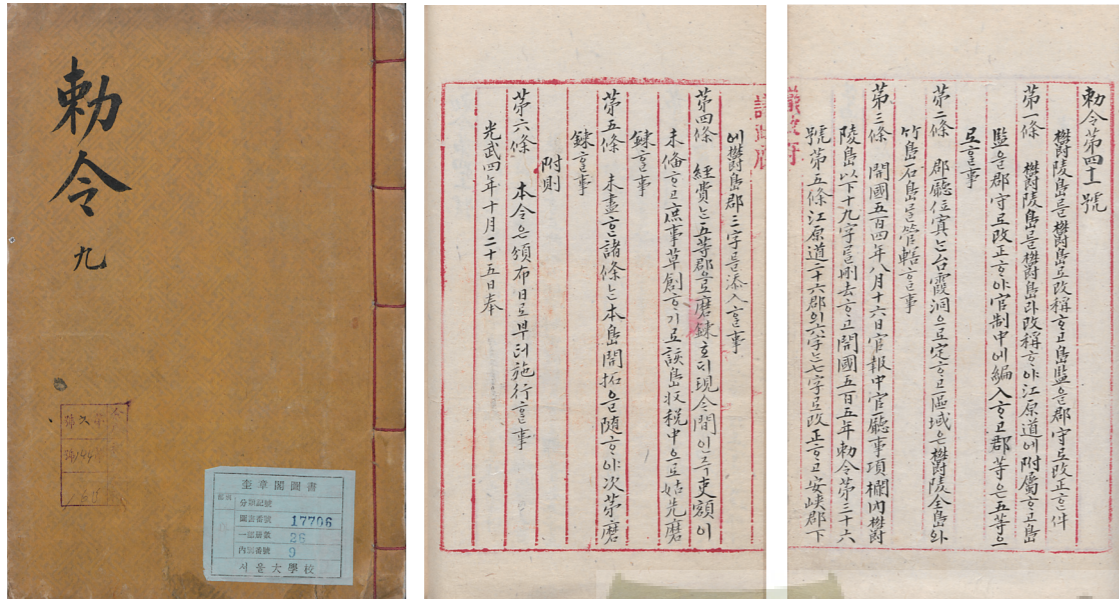 勅令
九
奎章閣圖書
分類記號
圖書番號 17706
一部冊數 26
內國番號 9
서울大學校
勅令第四十一號
欝陵島를欝島로改稱ᄒᆞ고島監을郡守로改正ᄒᆞᆫ件
第一條 欝陵島를欝島라改稱ᄒᆞ야江原道에附屬ᄒᆞ고島
監을郡守로改正ᄒᆞ야官制中에編入ᄒᆞ고郡等은五等으
로ᄒᆞᆯ事
第二條 郡廳位寘는台霞洞으로定ᄒᆞ고區域은欝陵全島와
竹島石島를管轄ᄒᆞᆯ事
第三條 開國五百四年八月十六日官報中官廳事項欄內欝
陵島以下十九字를刪去ᄒᆞ고開國五百五年勅令第三十六
號第五條江原道二十六郡의六字는七字로改正ᄒᆞ고安峽郡下
議政府
에欝島郡三字를添入ᄒᆞᆯ事
第四條 經費는五等郡으로磨鍊호ᄃᆡ現今間인즉吏額이
未備ᄒᆞ고庶事草創ᄒᆞ기로該島收稅中으로姑先磨
鍊ᄒᆞᆯ事
第五條 未盡ᄒᆞᆫ諸條는本島開拓을隨ᄒᆞ야次第磨
鍊ᄒᆞᆯ事
附則
第六條 本令은頒布日로부터施行ᄒᆞᆯ事
光武四年十月二十五日奉